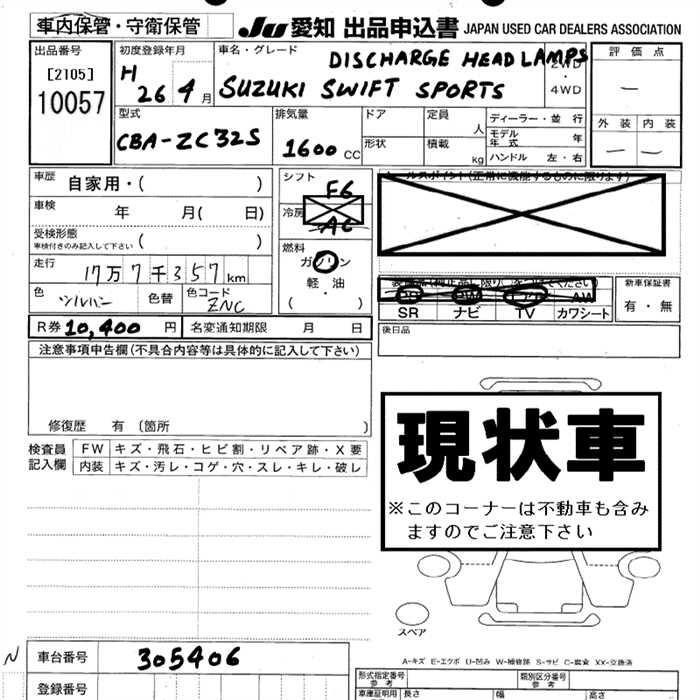 車内保管・守衛保管
JU 愛知 出品申込書 JAPAN USED CAR DEALERS ASSOCIATION
出品番号
[2105]
10057
初度登録年月
H 26 4月
車名・グレード
DISCHARGE HEAD LAMPS
SUZUKI SWIFT SPORTS
2WD
・
4WD
評価点
―
外装 内装
― ―
型式
CBA-ZC32S
排気量
1600 CC
ドア
定員
人
形状
積載
kg
ディーラー・並行
モデル年式 年
ハンドル 左・右
車歴 自家用・( )
車検 年 月( 日)
受検形態
車検付きのみ記入して下さい ( )
走行 17万7千357km
色 シルバー 色替 色コード ZNC
シフト
F6
冷房
AC
燃料
ガソリン
・
軽・油
( ・ )
セールスポイント(正常に機能するものに限ります)
SR ナビ TV AW カワシート
新車保証書
有・無
後日品
R券 10,400 円 名変通知期限 月 日
注意事項申告欄(不具合内容等は具体的に記入して下さい)
修復歴 有 〔箇所 〕
検査員
記入欄
FW キズ・飛石・ヒビ割・リペア跡・X要
内装 キズ・汚レ・コゲ・穴・スレ・キレ・破レ
現状車
※このコーナーは不動車も含み
ますのでご注意下さい
スペア
A-キズ E-エクボ U-凹み W-補修跡 S-サビ C-腐食 XX-交換済
N
車台番号 305406
登録番号
形式指定番号
参考
類別区分番号
参考
車庫証明用
長さ 幅 高さ